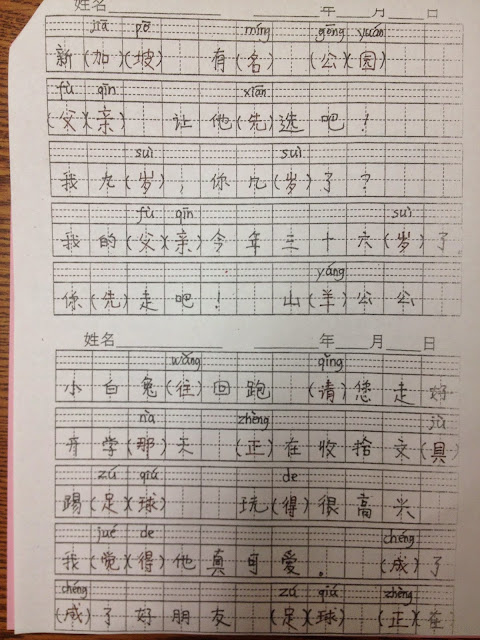 姓名 年 月 日
jiā pō míng gōng yuán
新(加)(坡) 有(名) (公)(园)
fù qīn xiān
(父)(亲) 让他(先)选吧!
suì suì
我九(岁),你九(岁)了?
fù qīn suì
我的(父)(亲)今年三十六(岁)了。
yáng
你(先)走吧! 山(羊)公公
姓名 年 月 日
wǎng qǐng
小白兔(往)回跑 (请)您走好
nà zhèng jù
开学(那)天 (正)在收拾文(具)
zú qiú de
踢(足)(球) 玩(得)很高兴
jué de chéng
我(觉)(得)他真可爱。 (成)了
chéng zú qiú zhèng
(成)了好朋友 (足)(球) (正)在